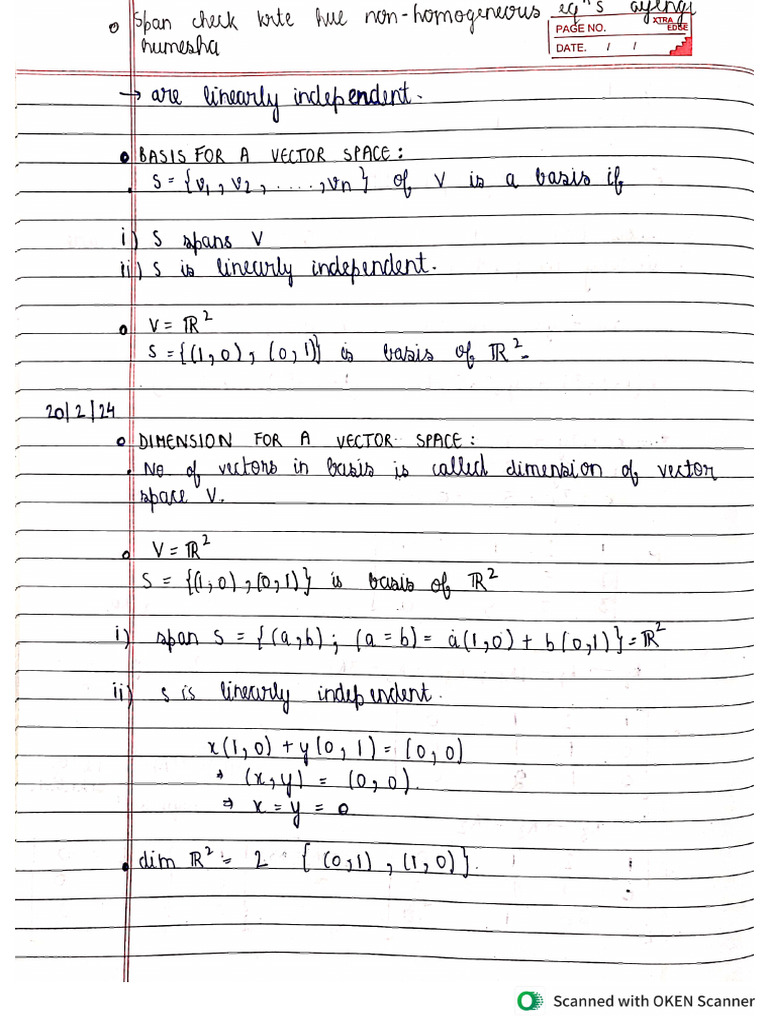 • Span check krte hue non-homogeneous eqⁿs ayengi
humesha
XTRA EDGE
PAGE NO.
DATE. / /
→ are linearly independent.
• BASIS FOR A VECTOR SPACE:
• S = {v₁, v₂, ....., vn} of V is a basis if
i) S spans V
ii) S is linearly independent.
• V = ℝ²
S = {(1,0), (0,1)} is basis of ℝ².
20/2/24
• DIMENSION FOR A VECTOR SPACE:
• No of vectors in basis is called dimension of vector
space V.
• V = ℝ²
S = {(1,0), (0,1)} is basis of ℝ²
i) span S = {(a,b); (a = b) = a(1,0) + b(0,1)} = ℝ²
ii) S is linearly independent.
x(1,0) + y(0,1) = (0,0)
⇒ (x,y) = (0,0).
⇒ x = y = 0
• dim ℝ² = 2 {(0,1), (1,0)}.
Scanned with OKEN Scanner